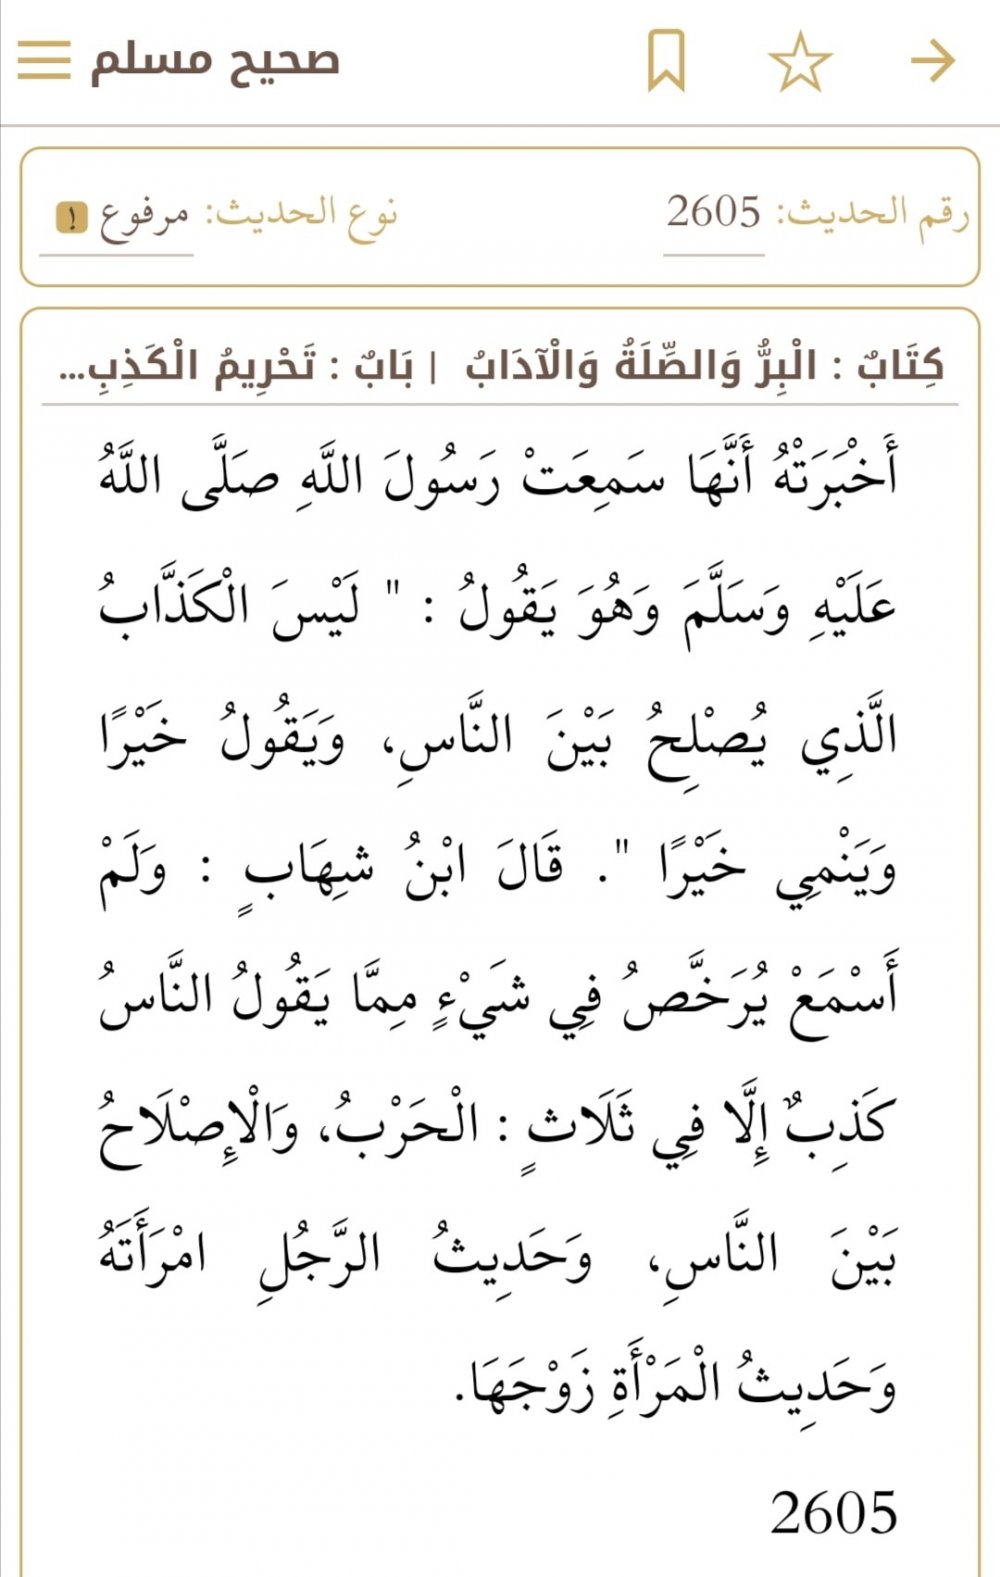 صحيح مسلم
رقم الحديث: 2605 نوع الحديث: مرفوع !
كِتَابٌ : الْبِرُّ وَالصِّلَةُ وَالْآدَابُ | بَابٌ : تَحْرِيمُ الْكَذِبِ...
أَخْبَرَتْهُ أَنَّهَا سَمِعَتْ رَسُولَ اللَّهِ صَلَّى اللَّهُ
عَلَيْهِ وَسَلَّمَ وَهُوَ يَقُولُ : " لَيْسَ الْكَذَّابُ
الَّذِي يُصْلِحُ بَيْنَ النَّاسِ، وَيَقُولُ خَيْرًا
وَيَنْمِي خَيْرًا ". قَالَ ابْنُ شِهَابٍ : وَلَمْ
أَسْمَعْ يُرَخَّصُ فِي شَيْءٍ مِمَّا يَقُولُ النَّاسُ
كَذِبٌ إِلَّا فِي ثَلَاثٍ : الْحَرْبُ، وَالْإِصْلَاحُ
بَيْنَ النَّاسِ، وَحَدِيثُ الرَّجُلِ امْرَأَتَهُ
وَحَدِيثُ الْمَرْأَةِ زَوْجَهَا.
2605